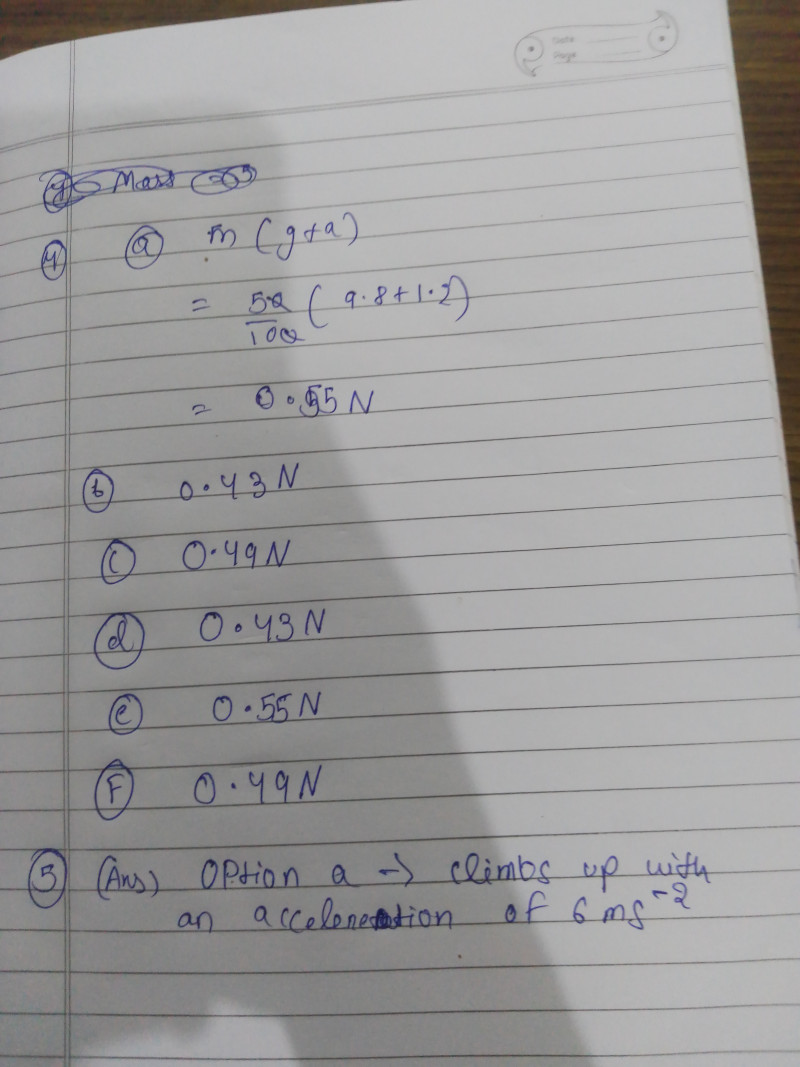 Date
Page
Mass
4 a m (g+a)
= 50/100 (9.8+1.2)
= 0.55 N
b 0.43 N
c 0.49 N
d 0.43 N
e 0.55 N
F 0.49 N
5 (Ans) Option a → climbs up with
an acceleneration of 6 ms⁻²